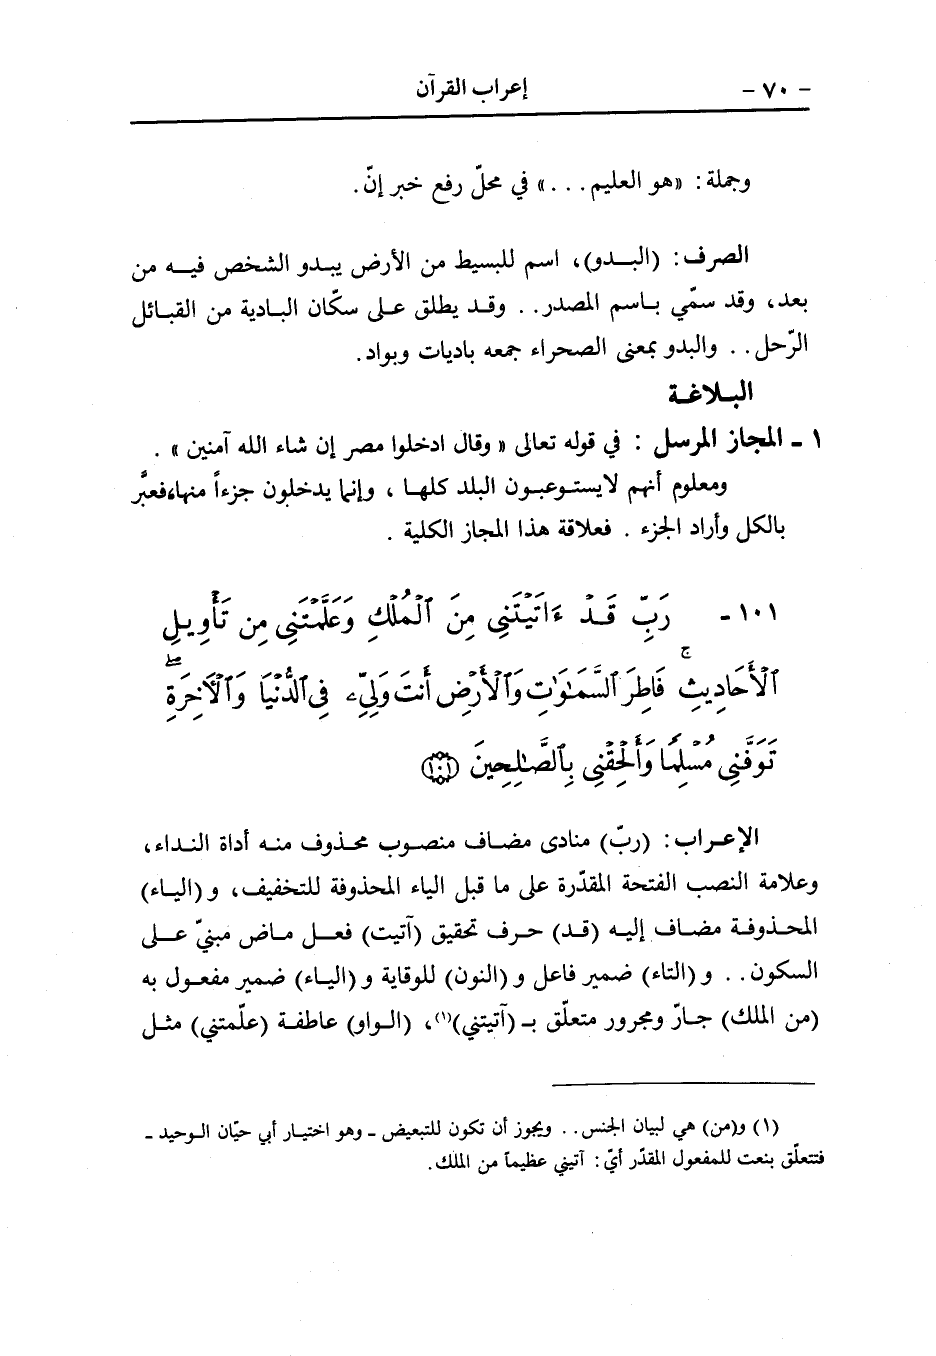 - ٧٠ - إعراب القرآن
وجملة: «هو العليم...» في محلّ رفع خبر إنّ.
الصرف: (البدو)، اسم للبسيط من الأرض يبدو الشخص فيه من
بعد، وقد سمّي باسم المصدر.. وقد يطلق على سكّان البادية من القبائل
الرّحل.. والبدو بمعنى الصحراء جمعه باديات وبواد.
البلاغة
١ - المجاز المرسل : في قوله تعالى « وقال ادخلوا مصر إن شاء الله آمنين » .
ومعلوم أنهم لايستوعبون البلد كلها ، وإنما يدخلون جزءاً منها،فعبَّر
بالكل وأراد الجزء . فعلاقة هذا المجاز الكلية .
١٠١ - رَبِّ قَدْ ءَاتَيْتَنِى مِنَ ٱلْمُلْكِ وَعَلَّمْتَنِى مِن تَأْوِيلِ
ٱلْأَحَادِيثِ ۚ فَاطِرَ ٱلسَّمَـٰوَٰتِ وَٱلْأَرْضِ أَنتَ وَلِىِّۦ فِى ٱلدُّنْيَا وَٱلْـَٔاخِرَةِ ۖ
تَوَفَّنِى مُسْلِمًا وَأَلْحِقْنِى بِٱلصَّـٰلِحِينَ ﴿١٠١﴾
الإعراب: (ربّ) منادى مضاف منصوب محذوف منه أداة النداء،
وعلامة النصب الفتحة المقدّرة على ما قبل الياء المحذوفة للتخفيف، و (الياء)
المحذوفة مضاف إليه (قد) حرف تحقيق (آتيت) فعل ماض مبنيّ على
السكون.. و (التاء) ضمير فاعل و (النون) للوقاية و (الياء) ضمير مفعول به
(من الملك) جارّ ومجرور متعلّق بـ (آتيتني)(١)، (الواو) عاطفة (علّمتني) مثل
(١) و(من) هي لبيان الجنس.. ويجوز أن تكون للتبعيض - وهو اختيار أبي حيّان الوحيد -
فتتعلّق بنعت للمفعول المقدّر أيّ: آتيني عظيماً من الملك.